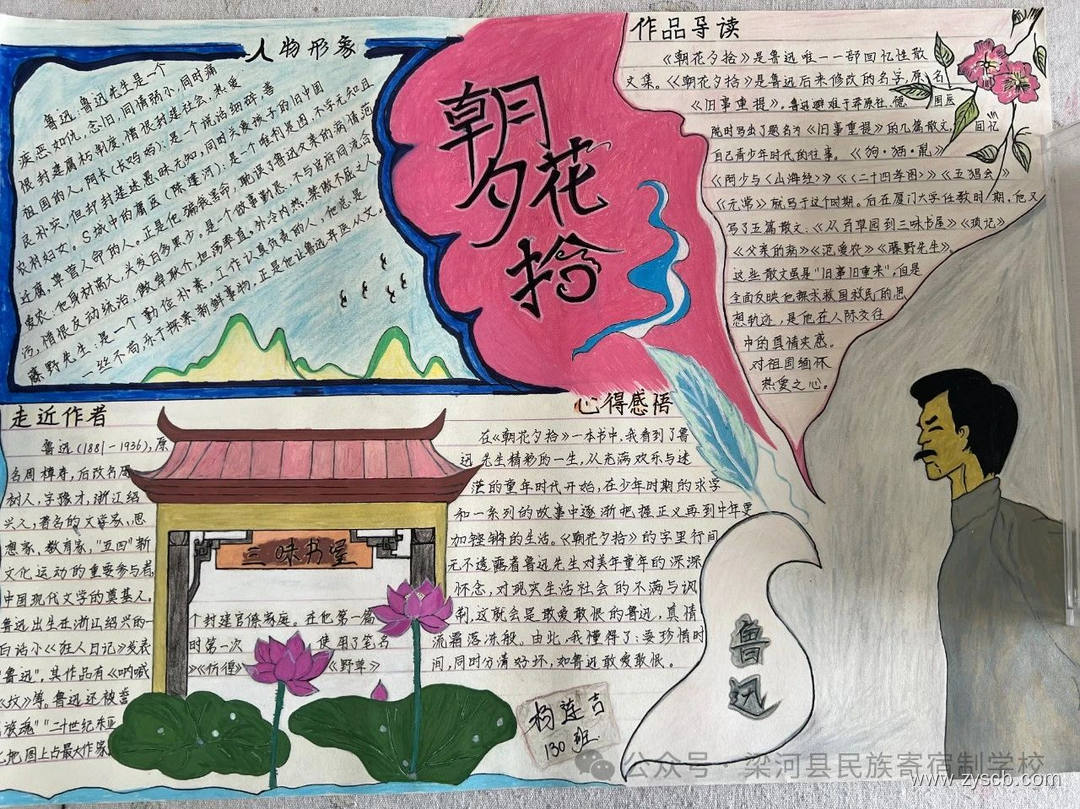 人物形象
鲁迅:鲁迅先生是一个
疾恶如仇,念旧,同情弱小,同时痛
恨封建腐朽制度,憎恨封建社会,热爱
祖国的人。阿长(长妈妈):是一个说话细碎,善
良朴实,但却封建迷愚昧无知,同时关爱孩子的旧中国
农村妇女。S城中的庸医(陈莲河):是一个唯利是图,不学无知且
近庸,草菅人命的人。正是他骗我害命,耽误了鲁迅父亲的病情范
爱农:他身材高大,关发白多黑少。是一个做事勤恳,不与官府同流合
污,憎恨反动统治,傲卑耿介,坦荡率直,外冷内热,桀傲不屈之人
藤野先生:是一个勤位朴素,工作认真负责的人,他总是
一丝不苟,乐于探索新鲜事物,正是他让鲁迅弃医从文。
朝花
夕拾
作品导读
《朝花夕拾》是鲁迅唯一一部回忆性散
文集。《朝花夕拾》是鲁迅后来修改的名字,原名
《旧事重提》。鲁迅避难于莽原社,德 国医
院时写出了题名为《旧事重提》的几篇散文, 回忆
自己青少年时代的往事。《狗·猫·鼠》
《阿长与〈山海经〉》《二十四孝图》《五猖会》
《无常》就写于这个时期。后在厦门大学任教时,他又
写了五篇散文:《从百草园到三味书屋》《琐记》
《父亲的病》《范爱农》《藤野先生》,
这些散文虽是"旧事旧重来",但是
全面反映他探求救国救民的思
想轨迹,是他在人际交往
中的真情实感。
对祖国缅怀
热爱之心。
走近作者
鲁迅(1881-1936),原
名周樟寿,后改名周
树人,字豫才,浙江绍
兴人,著名的文学家、思
想家、教育家,"五四"新
文化运动的重要参与者,
中国现代文学的奠基人。
鲁迅出生在浙江绍兴的一
个封建官僚家庭。在他第一篇
白话小《狂人日记》发表
时第一次 使用了笔名
"鲁迅",其作品有《呐喊
》《彷徨》 《野草》
《坟》等。鲁迅还被誉
民族魂""二十世纪东亚
文化地图上占最大作家
三味书屋
心得感悟
在《朝花夕拾》一本书中,我看到了鲁
迅先生精彩的一生,从充满欢乐与迷
茫的童年时代开始,在少年时期的求学
和一系列的故事中逐渐把握正义再到中年更
加铿锵的生活。《朝花夕拾》的字里行间
无不透露着鲁迅先生对美年童年的深深
怀念,对现实生活社会的不满与讽
刺,这就会是敢爱敢恨的鲁迅,真情
流露落冻般。由此,我懂得了:要珍惜时
间,同时分清好坏,如鲁迅敢爱敢恨。
鲁
迅
杨连吉
130班
公众号·梁河县民族寄宿制学校
www.zyscb.com